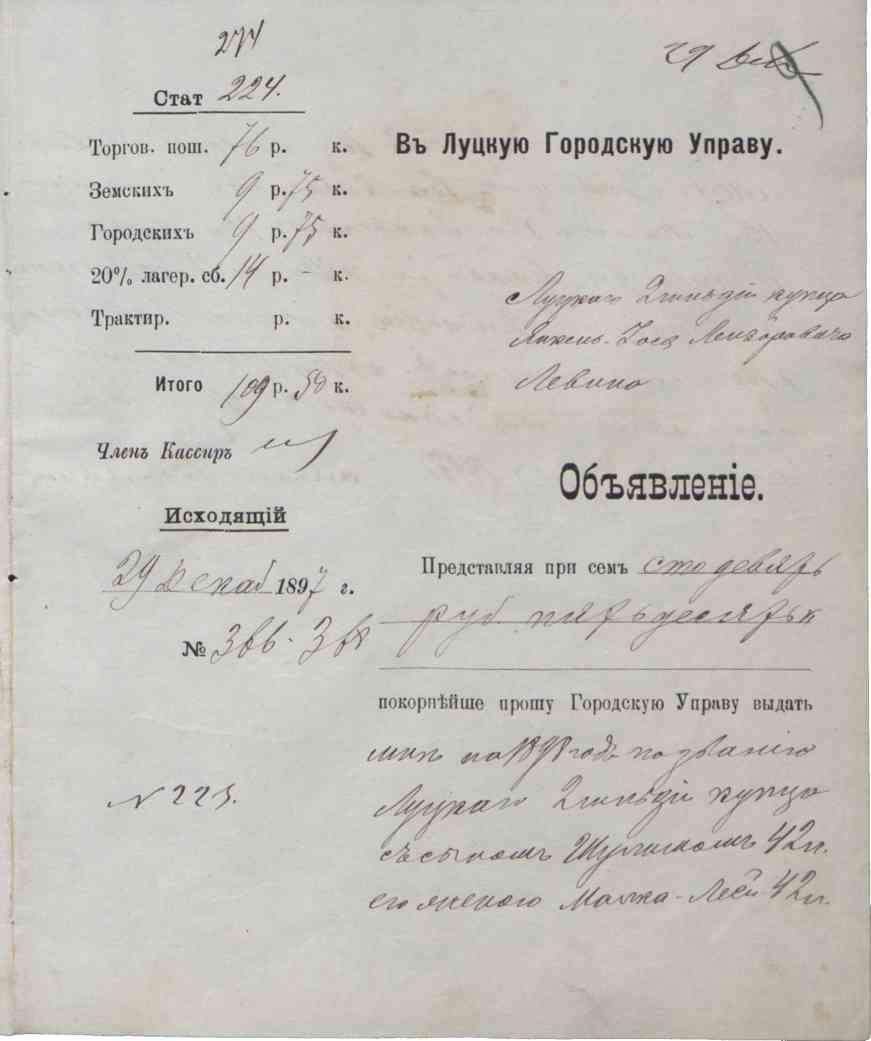 274
Стат 224.
Торгов. пош. 76 р. к.
Земскихъ 9 р. 75 к.
Городскихъ 9 р. 75 к.
20% лагер. сб. 14 р. – к.
Трактир. р. к.
Итого 109 р. 50 к.
Членъ Кассиръ
Исходящій
29 Декаб 1897 г.
№
N 225.
29 Дек
Въ Луцкую Городскую Управу.
Луцкаго 2 гильдіи купца
Янкель-Іося Лейзоровича
Левина
Объявленіе.
Представляя при семъ сто девять
руб. пятьдесятъ к
покорнѣйше прошу Городскую Управу выдать
мнѣ на 1898 годъ по званію
Луцкаго 2 гильдіи купца
съ сыномъ Шулимомъ 42 л.
его женою Малка-Лея 42 л.